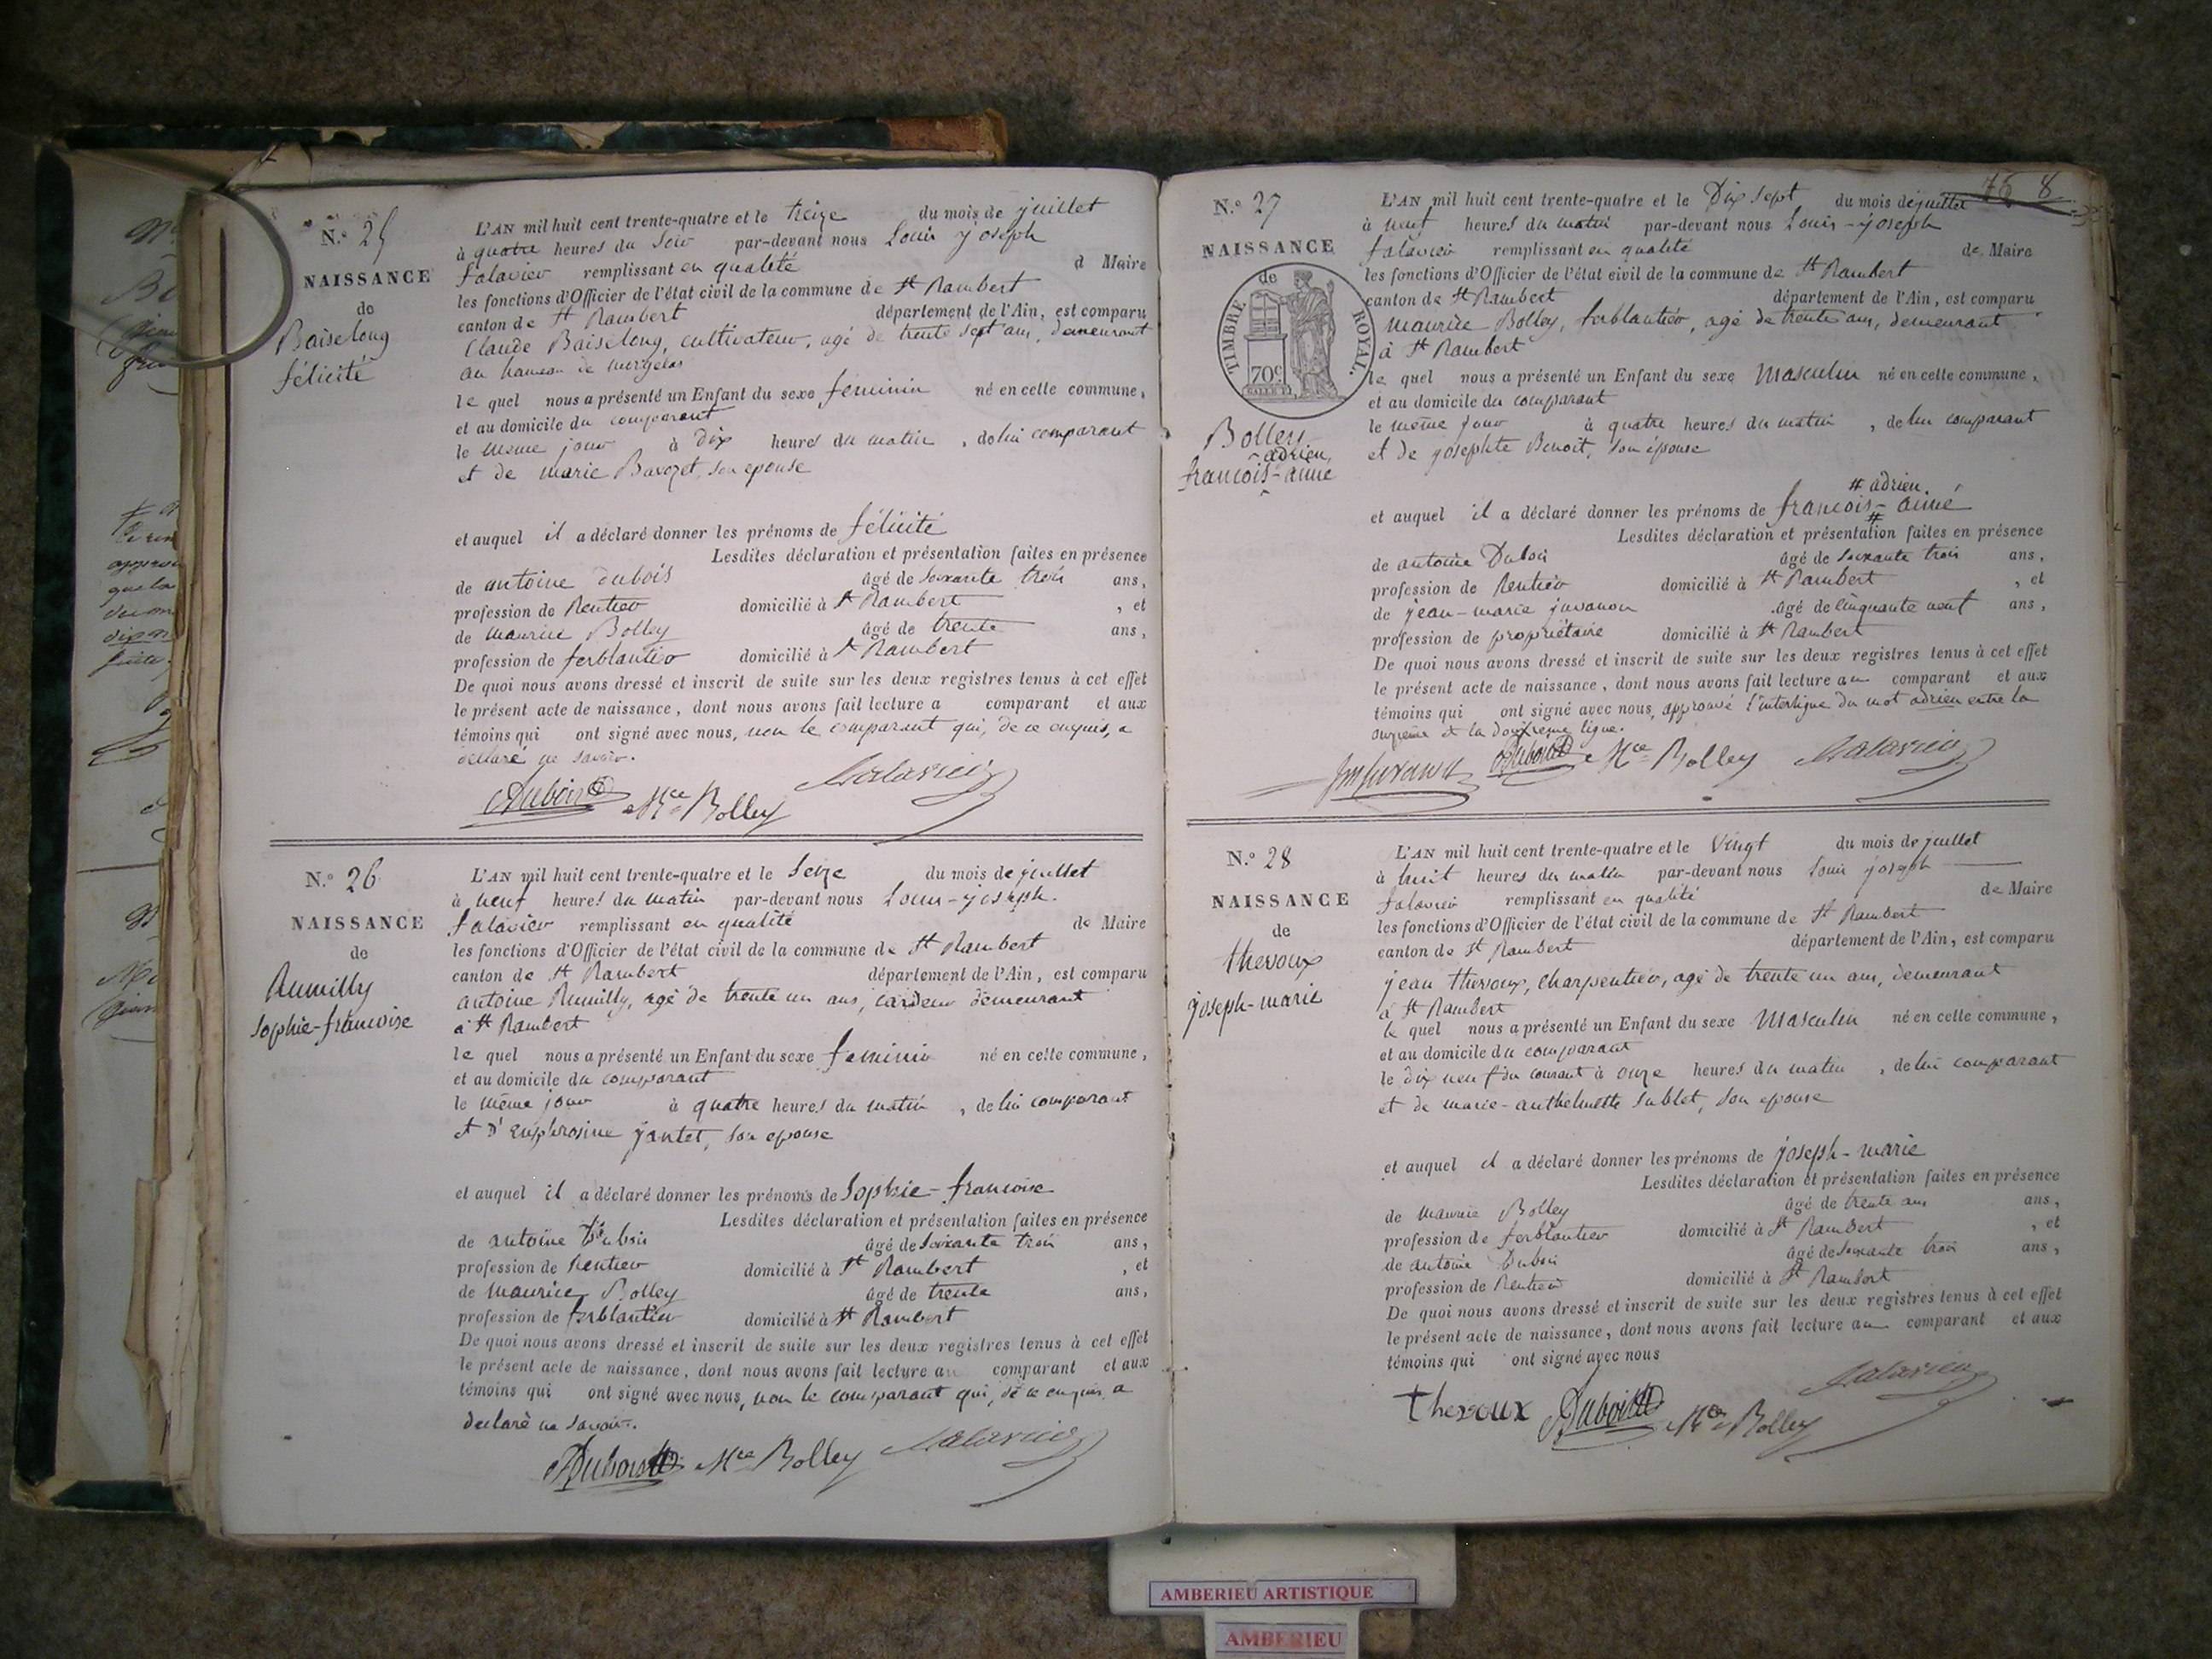 N.º 25
NAISSANCE
de
Baiselong
félicité
L'AN mil huit cent trente-quatre et le treize du mois de juillet
à quatre heures du soir par-devant nous Louis joseph
falavier remplissant en qualité d Maire
les fonctions d'Officier de l'état civil de la commune de St Rambert
canton de St Rambert département de l'Ain, est comparu
Claude Baiselong, cultivateur, agé de trente sept ans, demeurant
au hameau de morgelas
le quel nous a présenté un Enfant du sexe féminin né en celle commune,
et au domicile du comparant
le même jour à Dix heures du matin , de lui comparant
et de marie Bavozet son epouse
et auquel il a déclaré donner les prénoms de félicité
Lesdites déclaration et présentation faites en présence
de antoine dubois âgé de soixante trois ans,
profession de Rentier domicilié à St Rambert , et
de maurice Bolley âgé de trente ans,
profession de ferblantier domicilié à St Rambert
De quoi nous avons dressé et inscrit de suite sur les deux registres tenus à cet effet
le présent acte de naissance, dont nous avons fait lecture a comparant et aux
témoins qui ont signé avec nous, non le comparant qui, de ce enquis, a
déclaré ne savoir.
Dubois Mce Bolley falavier
N.º 26
NAISSANCE
de
Rumilly
Sophie-francoise
L'AN mil huit cent trente-quatre et le Seize du mois de juillet
à neuf heures du matin par-devant nous Louis-joseph
falavier remplissant en qualité de Maire
les fonctions d'Officier de l'état civil de la commune de St Rambert
canton de St Rambert département de l'Ain, est comparu
antoine Rumilly, agé de trente un ans, cardeur demeurant
à St Rambert
le quel nous a présenté un Enfant du sexe feminin né en celle commune,
et au domicile du comparant
le même jour à quatre heures du matin , de lui comparant
et d'euphrosine jantet, son epouse
et auquel il a déclaré donner les prénoms de Sophie-francoise
Lesdites déclaration et présentation faites en présence
de antoine Dubois âgé de soixante trois ans,
profession de Rentier domicilié à St Rambert , et
de maurice Bolley âgé de trente ans,
profession de ferblantier domicilié à St Rambert
De quoi nous avons dressé et inscrit de suite sur les deux registres tenus à cet effet
le présent acte de naissance, dont nous avons fait lecture au comparant et aux
témoins qui ont signé avec nous, non le comparant qui, de ce enquis, a
declaré ne savoir.
Dubois Mce Bolley falavier
75 8
N.º 27
NAISSANCE
de
TIMBRE ROYAL.
70c
Bolley
adrien,
francois-aimé
L'AN mil huit cent trente-quatre et le Dix sept du mois de juillet
à neuf heures du matin par-devant nous Louis-joseph
falavier remplissant en qualité de Maire
les fonctions d'Officier de l'état civil de la commune de St Rambert
canton de St Rambert département de l'Ain, est comparu
maurice Bolley, ferblantier, agé de trente ans, demeurant
à St Rambert
le quel nous a présenté un Enfant du sexe masculin né en celle commune,
et au domicile du comparant
le même jour à quatre heures du matin , de lui comparant
et de josephte Benoit, son épouse
# adrien
et auquel il a déclaré donner les prénoms de francois-aimé
#
Lesdites déclaration et présentation faites en présence
de antoine Dubois âgé de soixante trois ans,
profession de Rentier domicilié à St Rambert , et
de jean-marie juvanon âgé de cinquante neuf ans,
profession de propriétaire domicilié à St Rambert
De quoi nous avons dressé et inscrit de suite sur les deux registres tenus à cet effet
le présent acte de naissance, dont nous avons fait lecture au comparant et aux
témoins qui ont signé avec nous, approuvé l'interligne du mot adrien entre la
onzième et la douzieme ligne.
jm juvanon Dubois Mce Bolley falavier
N.º 28
NAISSANCE
de
thevoux
joseph-marie
L'AN mil huit cent trente-quatre et le Vingt du mois de juillet
à huit heures du matin par-devant nous Louis joseph
falavier remplissant en qualité de Maire
les fonctions d'Officier de l'état civil de la commune de St Rambert
canton de St Rambert département de l'Ain, est comparu
jean thevoux, charpentier, agé de trente un ans, demeurant
à St Rambert
le quel nous a présenté un Enfant du sexe masculin né en celle commune,
et au domicile du comparant
le dix neuf du courant à onze heures du matin , de lui comparant
et de marie-anthelmette sublet, son epouse
et auquel il a déclaré donner les prénoms de joseph-marie
Lesdites déclaration et présentation faites en présence
de maurice Bolley âgé de trente ans ans,
profession de ferblantier domicilié à St Rambert , et
de antoine Dubois âgé de soixante trois ans,
profession de Rentier domicilié à St Rambert
De quoi nous avons dressé et inscrit de suite sur les deux registres tenus à cet effet
le présent acte de naissance, dont nous avons fait lecture au comparant et aux
témoins qui ont signé avec nous
thevoux Dubois Mce Bolley falavier
AMBERIEU ARTISTIQUE
AMBERIEU